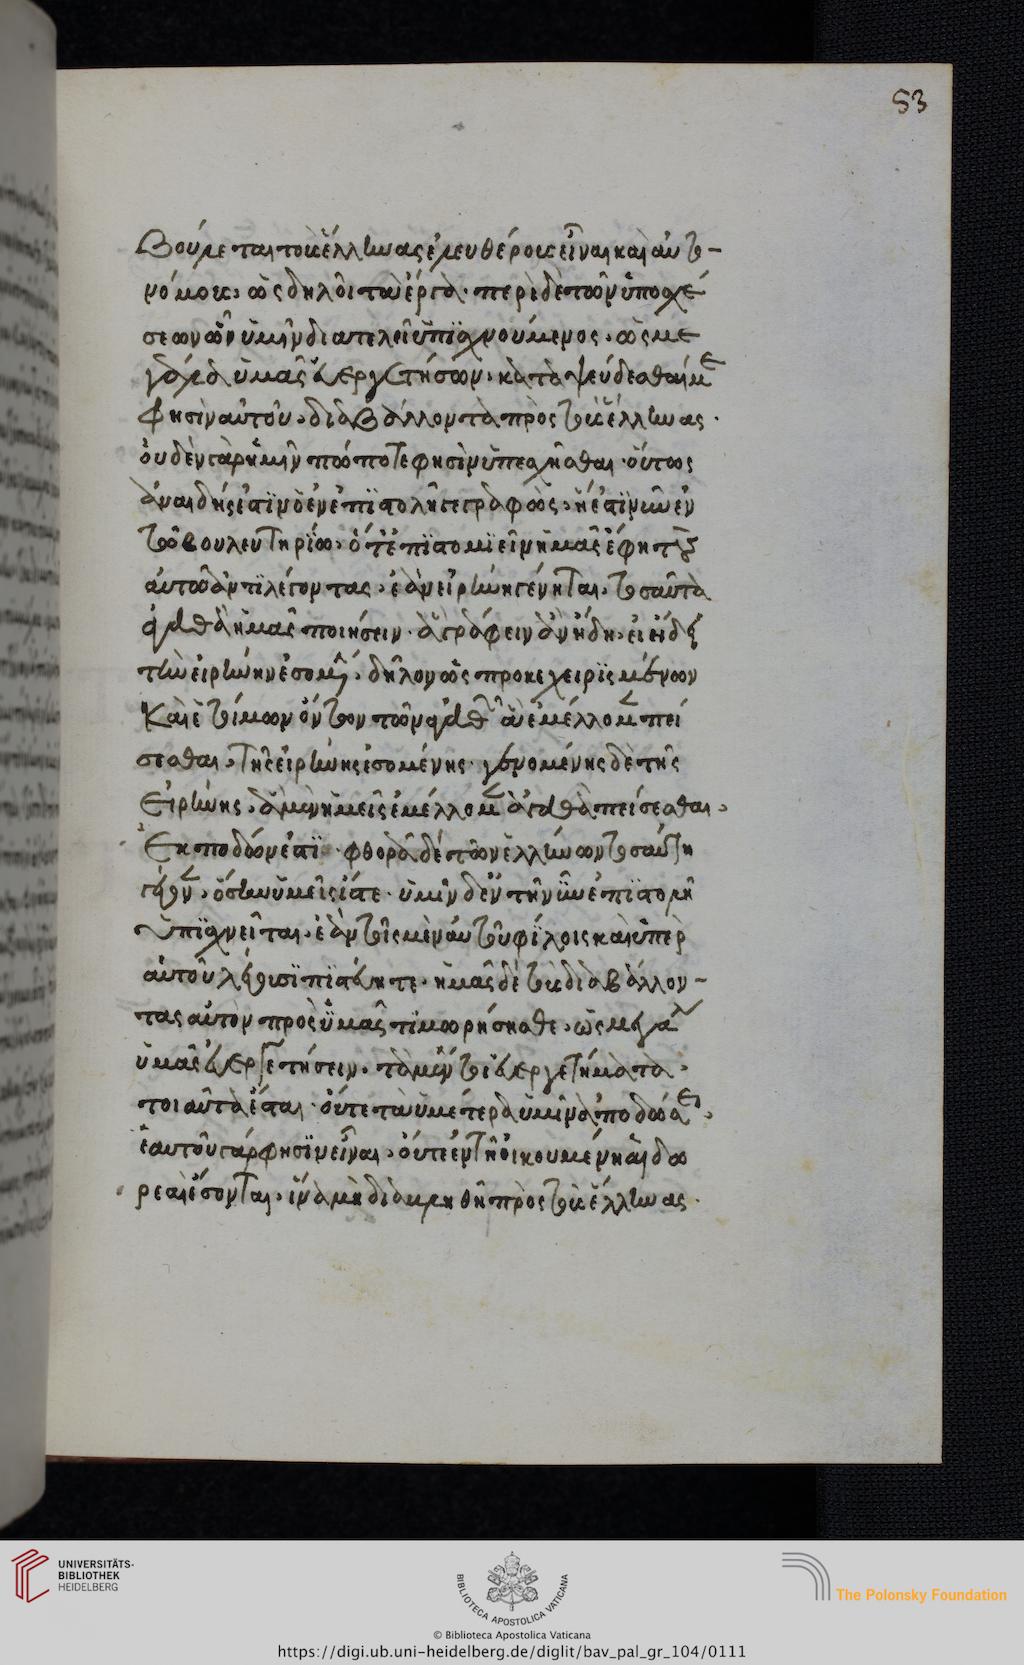 53
βούλεται τοὺς ἕλληνας ἐλευθέρους εἶναι καὶ αὐτο-
νόμους, ὡς δηλοῖ τὰ ἔργα. περὶ δὲ τῶν ὑποσχέ
σεων ὧν ὑμῖν διατελεῖ ὑπισχνούμενος, ὡς με
γάλα ὑμᾶς εὐεργετήσων, καταψεύδεσθαί με
φησὶν αὐτοῦ, διαβάλλοντα πρὸς τοὺς ἕλληνας.
οὐδὲν γὰρ ἡμῖν πώποτε φησὶν ὑπεσχῆσθαι. οὕτως
ἀναιδής ἐστιν ὁ ἐν ἐπιστολῆ γεγραφὼς, ἥ ἐστι νῦν ἐν
τῶ βουλευτηρίω, ὅτ' ἐπιστομιεῖν ἡμᾶς ἔφη τοὺς
αὐτῶ ἀντιλέγοντας, ἐὰν εἰρήνη γένηται, τοσαῦτα
ἀγαθὰ ἡμᾶς ποιήσειν. ἃ γράφειν ἂν ἤδη, εἰ ἤδει
τὴν εἰρήνην ἐσομένην, δῆλον ὡς προκεχειρισμένων
καὶ ἑτοίμων ὄντων τῶν ἀγαθῶν ἃ ἐμέλλομεν πεί
σεσθαι, τῆς εἰρήνης ἐσομένης. γενομένης δὲ τῆς
εἰρήνης, ἃ μὲν ἡμεῖς ἐμέλλομεν ἀγαθὰ πείσεσθαι,
ἐκποδών ἐστι. φθορὰ δὲ τῶν ἑλλήνων τοσαύτη
γέγονεν, ὅσην ὑμεῖς ἴστε. ὑμῖν δ' ἐν τῆ νῦν ἐπιστολῆ
ὑπισχνεῖται, ἐὰν τοῖς μὲν αὑτοῦ φίλοις καὶ ὑπὲρ
αὐτοῦ λέγουσι πιστεύητε, ἡμᾶς δὲ τοὺς διαβάλλον-
τας αὐτὸν πρὸς ὑμᾶς τιμωρήσησθε, ὡς μεγάλα
ὑμᾶς εὐεργετήσειν, τὰ μέντοι εὐεργετήματα
τοιαῦτα ἔσται. οὔτε τὰ ὑμέτερα ὑμῖν ἀποδώσει,
ἑαυτοῦ γάρ φησιν εἶναι, οὔτε ἐν τῆ οἰκουμένη αἱ δω
ρεαὶ ἔσονται, ἵνα μὴ διαβληθῆ πρὸς τοὺς ἕλληνας.
UNIVERSITÄTS-
BIBLIOTHEK
HEIDELBERG
BIBLIOTECA APOSTOLICA VATICANA
The Polonsky Foundation
© Biblioteca Apostolica Vaticana
https://digi.ub.uni-heidelberg.de/diglit/bav_pal_gr_104/0111